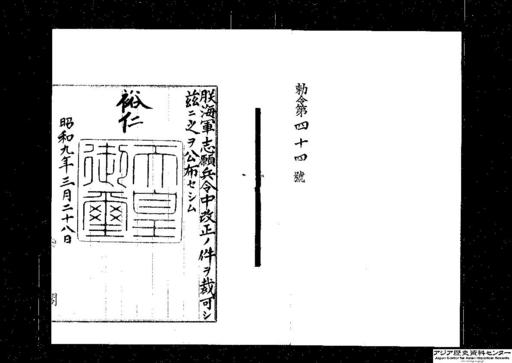 勅令第四十四號
朕海軍志願兵令中改正ノ件ヲ裁可シ
茲ニ之ヲ公布セシム
裕仁
天皇
御璽
昭和九年三月二十八日
アジア歴史資料センター
Japan Center for Asian Historical Records